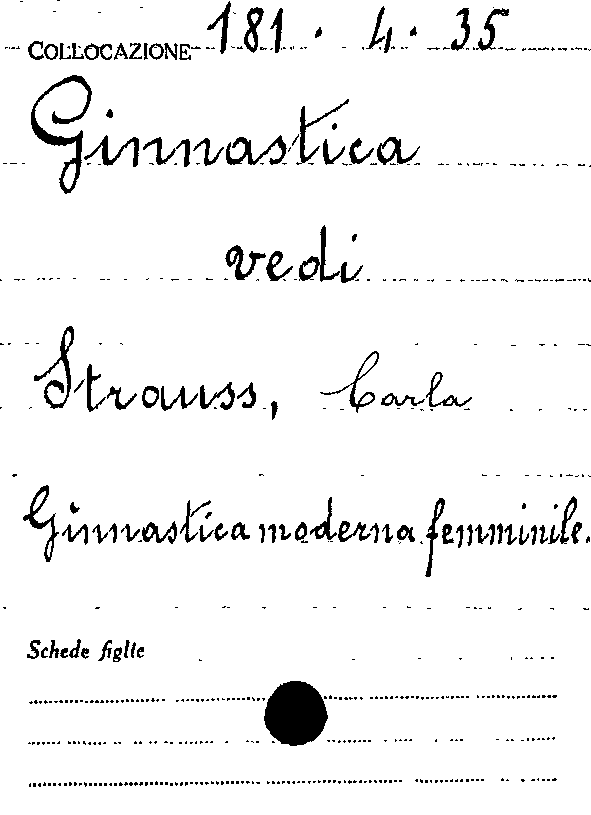 COLLOCAZIONE 181. 4. 35
Ginnastica
vedi
Strauss, Carla
Ginnastica moderna femminile.
Schede figlie